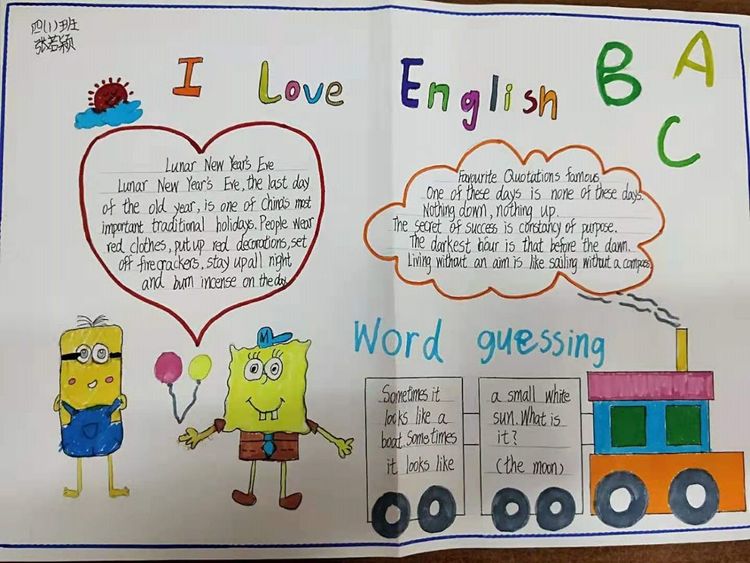 四(1)班
张若颖
I Love English
B A C
Lunar New Year's Eve
Lunar New Year's Eve, the last day
of the old year, is one of China's most
important traditional holidays. People wear
red clothes, put up red decorations, set
off firecrackers, stay up all night
and burn incense on the day
Favourite Quotations famous
One of these days is none of these days.
Nothing down, nothing up.
The secret of success is constancy of purpose.
The darkest hour is that before the dawn.
Living without an aim is like sailing without a compass
Word guessing
Sometimes it
looks like a
boat. Sometimes
it looks like
a small white
sun. What is
it?
(the moon)
M